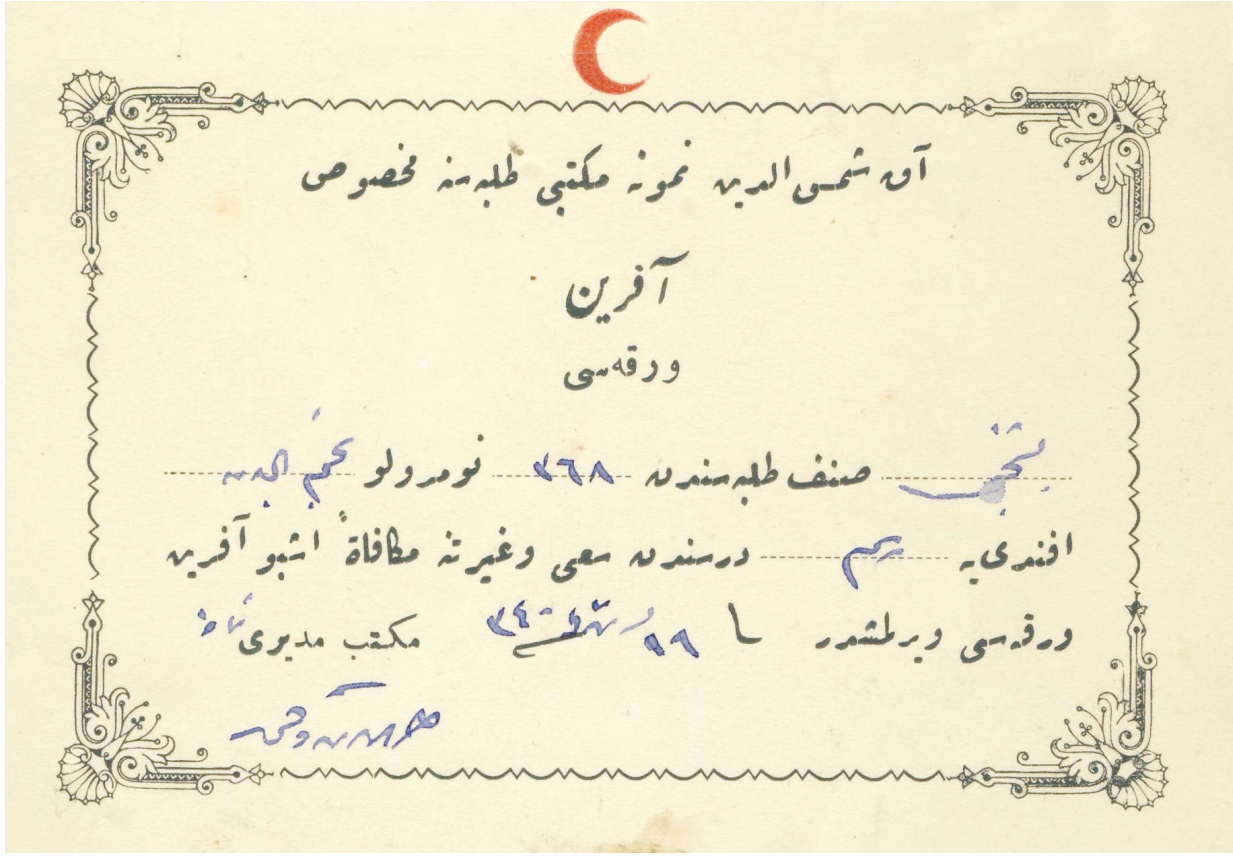 آق شمس الدین نمونه مکتبی طلبه سنه مخصوص
آفرین
ورقه سی
صنف طلبه سندن ٣٦٨ نومرولو نجم الدین
افندی یه رسم درسندن سعی وغیرتنه مکافاةً اشبو آفرین
ورقه سی ویرلمشدر مکتب مدیری